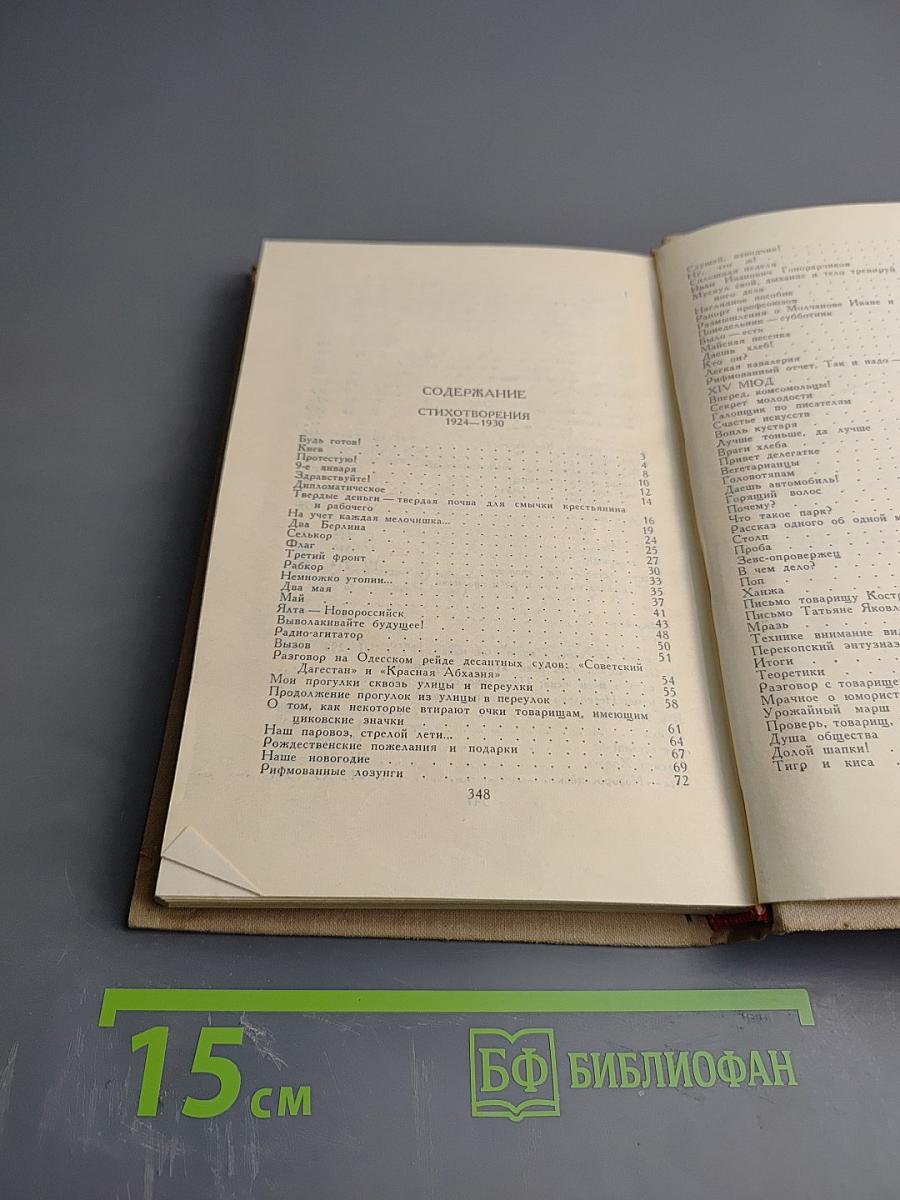 СОДЕРЖАНИЕ
СТИХОТВОРЕНИЯ
1924—1930
Будь готов! 3
Киев 4
Протестую! 8
9-е января 10
Здравствуйте! 12
Дипломатическое 14
Твердые деньги — твердая почва для смычки крестьянина
и рабочего 16
На учет каждая мелочишка... 19
Два Берлина 24
Селькор 25
Флаг 27
Третий фронт 30
Рабкор 33
Немножко утопии... 35
Два мая 37
Май 41
Ялта — Новороссийск 43
Выволакивайте будущее! 48
Радио-агитатор 50
Вызов 51
Разговор на Одесском рейде десантных судов: «Советский
Дагестан» и «Красная Абхазия» 54
Мои прогулки сквозь улицы и переулки 55
Продолжение прогулок из улицы в переулок 58
О том, как некоторые втирают очки товарищам, имеющим
циковские значки 61
Наш паровоз, стрелой лети... 64
Рождественские пожелания и подарки 67
Наше новогодие 69
Рифмованные лозунги 72
348
Слушай, наводчик!
Ну, что ж!
Сплошная неделя
Иван Иванович Гонорарчиков
Мускул свой, дыхание и тело тренируй
ного дела
Наглядное пособие
Рапорт профсоюзов
Размышления о Молчанове Иване и
Понедельник — субботник
Было — есть
Майская песенка
Даешь хлеб!
Кто он?
Легкая кавалерия
Рифмованный отчет. Так и надо —
XIV МЮД
Вперед, комсомольцы!
Секрет молодости
Галопщик по писателям
Счастье искусств
Вопль кустаря
Лучше тоньше, да лучше
Враги хлеба
Привет делегатке
Вегетарианцы
Головотяпам
Даешь автомобиль!
Горящий волос
Почему?
Что такое парк?
Рассказ одного об одной
Столп
Проба
Зевс-опровержец
В чем дело?
Поп
Ханжа
Письмо товарищу Костр
Письмо Татьяне Яковл
Мразь
Технике внимание вид
Перекопский энтузиаз
Итоги
Теоретики
Разговор с товарище
Мрачное о юморист
Урожайный марш
Проверь, товарищ,
Душа общества
Долой шапки!
Тигр и киса
15 см
БФ БИБЛИОФАН